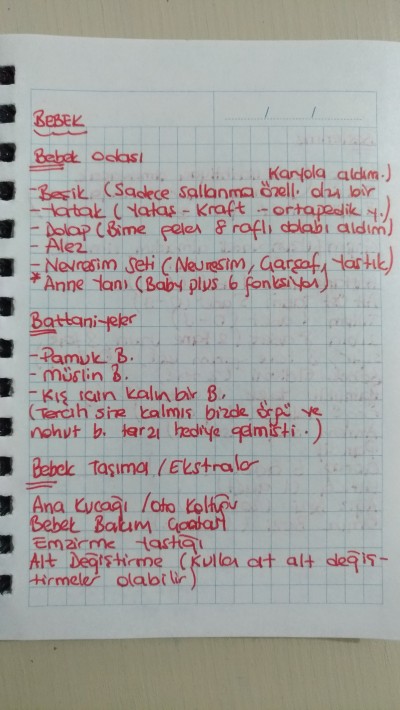 BEBEK
/ /
Bebek Odası
Karyola aldım.)
- Beşik (Sadece sallanma özell. olan bir
- Yatak (Yataş - Kraft - ortapedik y.)
- Dolap (Bime gelen 8 raflı dolabı aldım)
- Alez
- Nevresim Seti (Nevresim, Çarşaf, Yastık)
* Anne Yanı (Baby plus 6 fonksiyon)
Battaniyeler
- Pamuk B.
- Müslin B.
- Kış için kalın bir B.
(Tercih size kalmış bizde örgü ve
nohut b. tarzı hediye gelmişti.)
Bebek Taşıma / Ekstralar
Ana Kucağı / Oto Koltuğu
Bebek Bakım Çantası
Emzirme Yastığı
Alt Değiştirme (Kullan at alt değiş-
tirmeler olabilir)